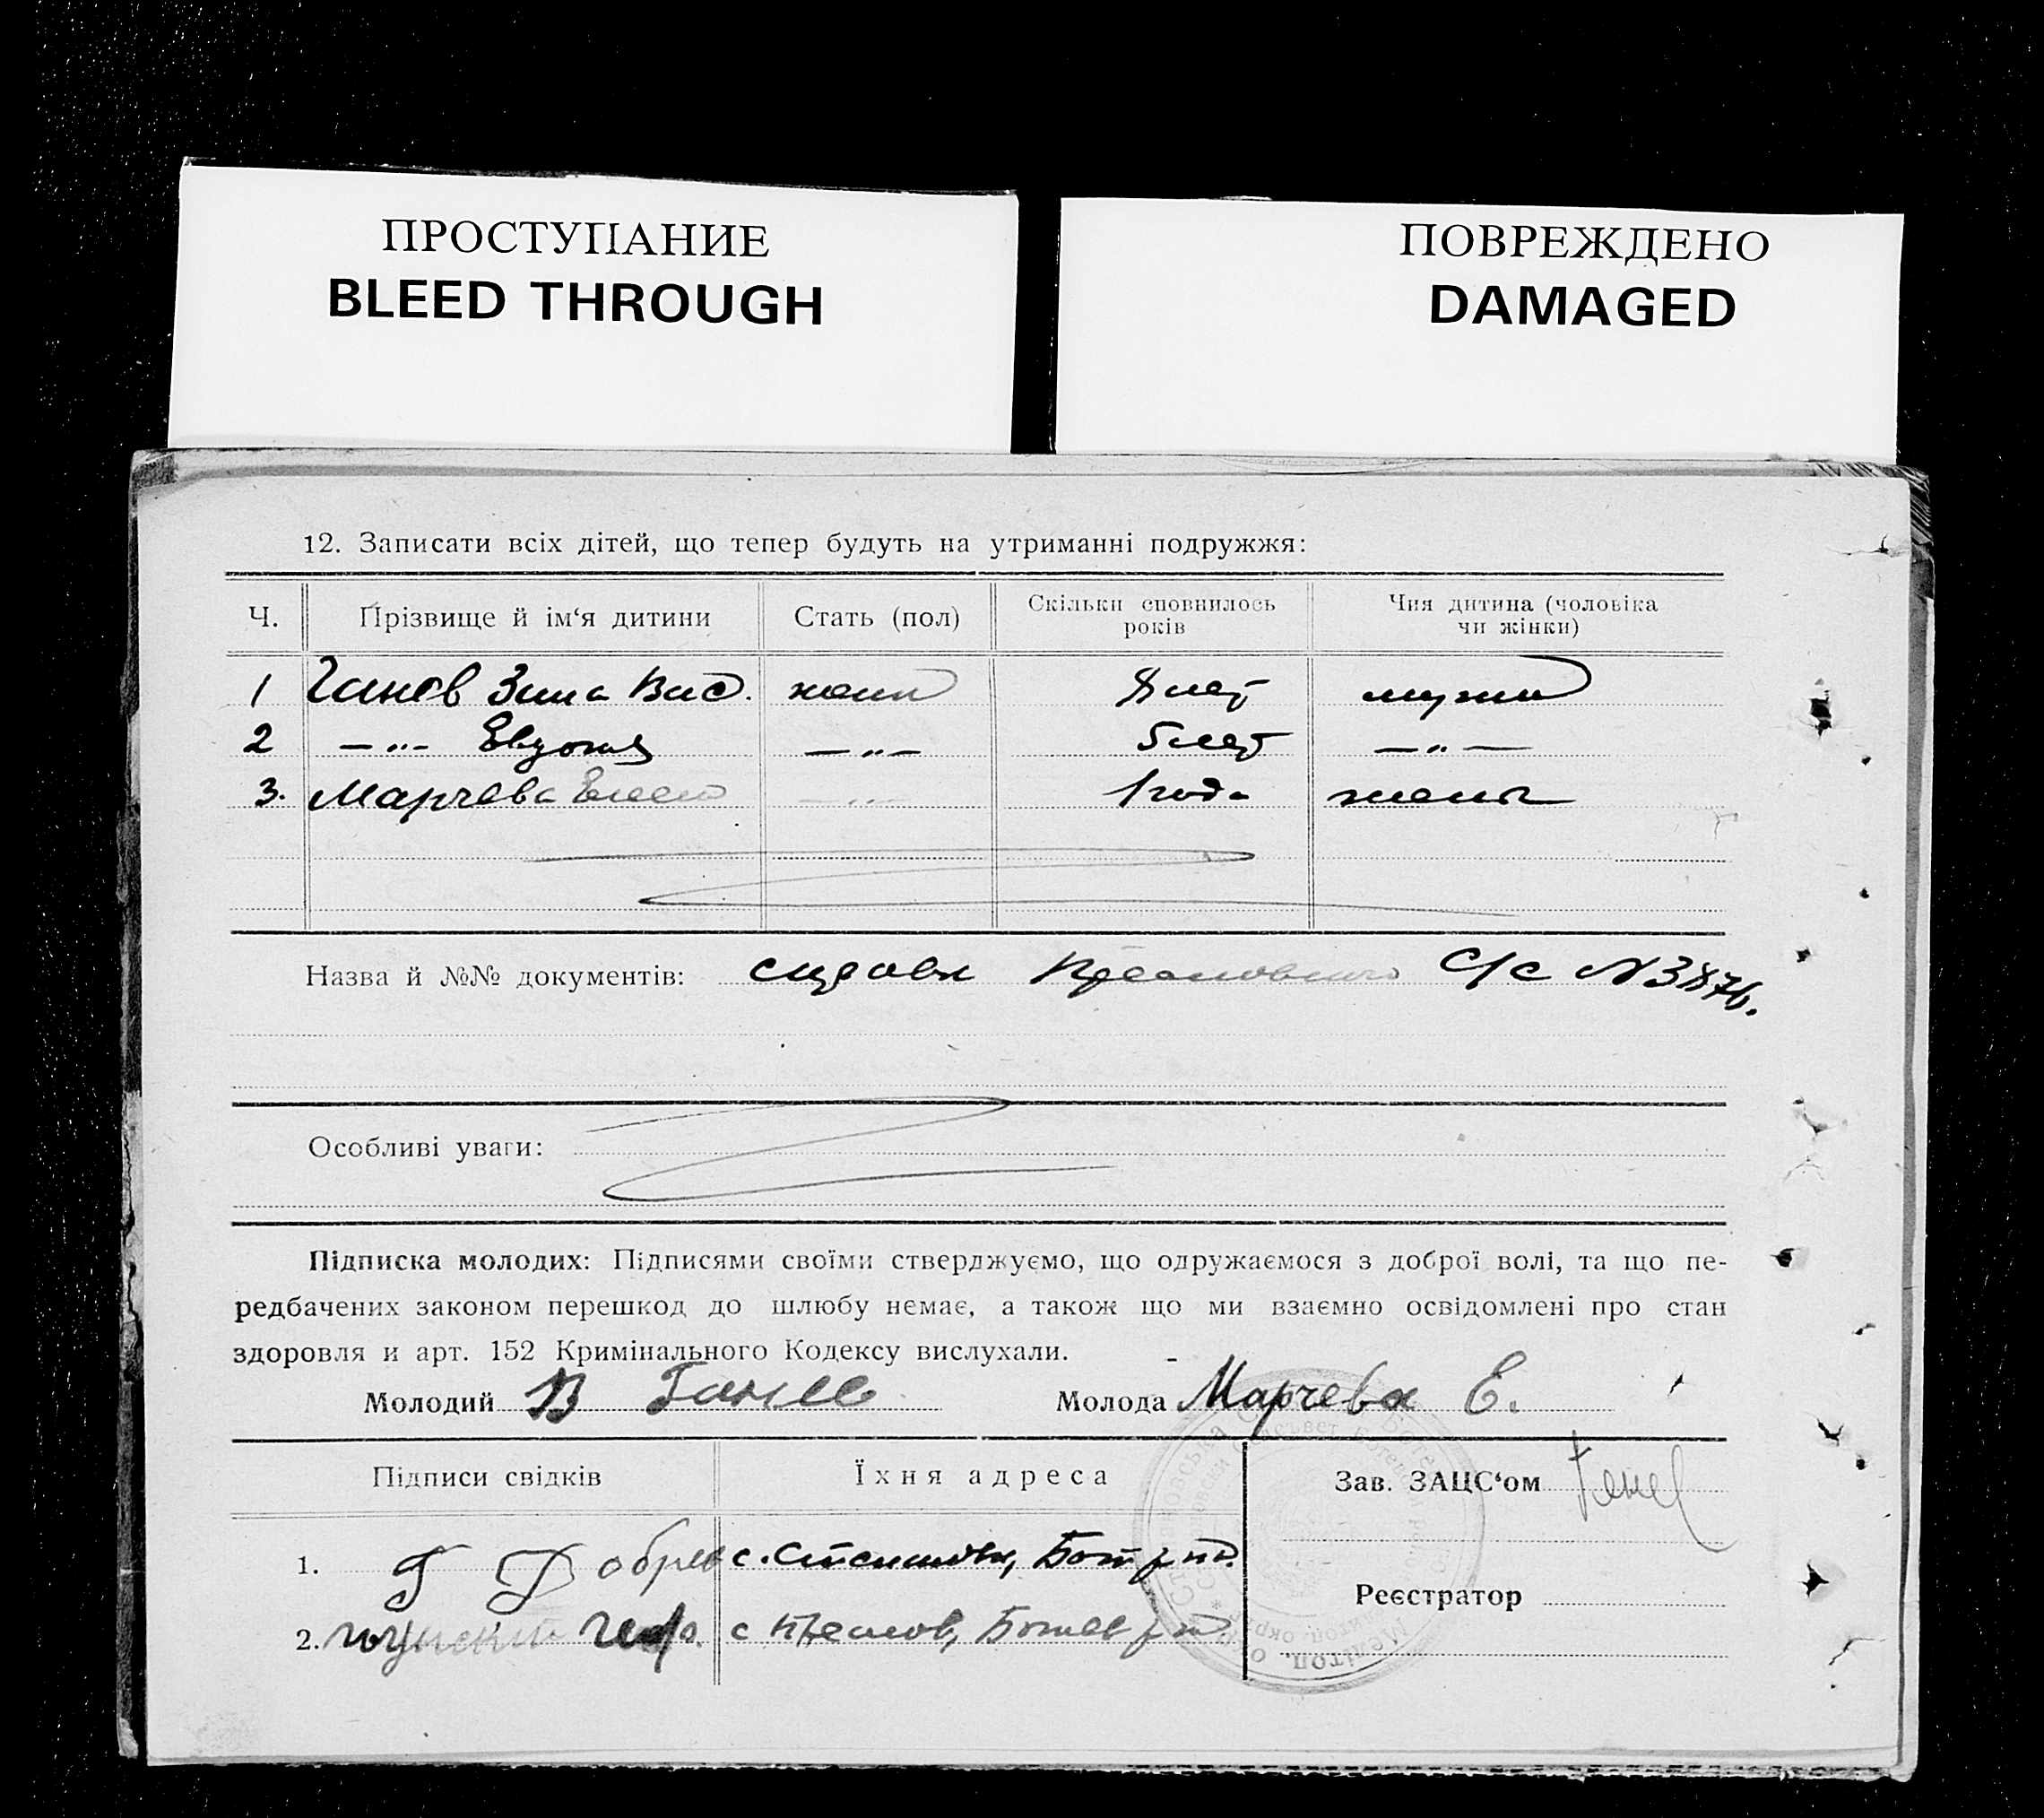 ПРОСТУПАНИЕ
BLEED THROUGH
ПОВРЕЖДЕНО
DAMAGED
12. Записати всіх дітей, що тепер будуть на утриманні подружжя:
Ч. Прізвище й ім‘я дитини Стать (пол) Скільки сповнилось років Чия дитина (чоловіка чи жінки)
1 Ганев Зина Вас. женс 8 лет мужа
2 —„— Евдокия —„— 5 лет —„—
3. Марчева —„— 1 года жены
Назва й №№ документів: С/С N
Особливі уваги:
Підписка молодих: Підписями своїми стверджуємо, що одружаємося з доброї волі, та що пе-
редбачених законом перешкод до шлюбу немає, а також що ми взаємно освідомлені про стан
здоровля и арт. 152 Кримінального Кодексу вислухали.
Молодий В Ганев Молода Марчева Е.
Підписи свідків Їхня адреса Зав. ЗАЦС‘ом
1. Г Добрев с.
Реєстратор
2. с